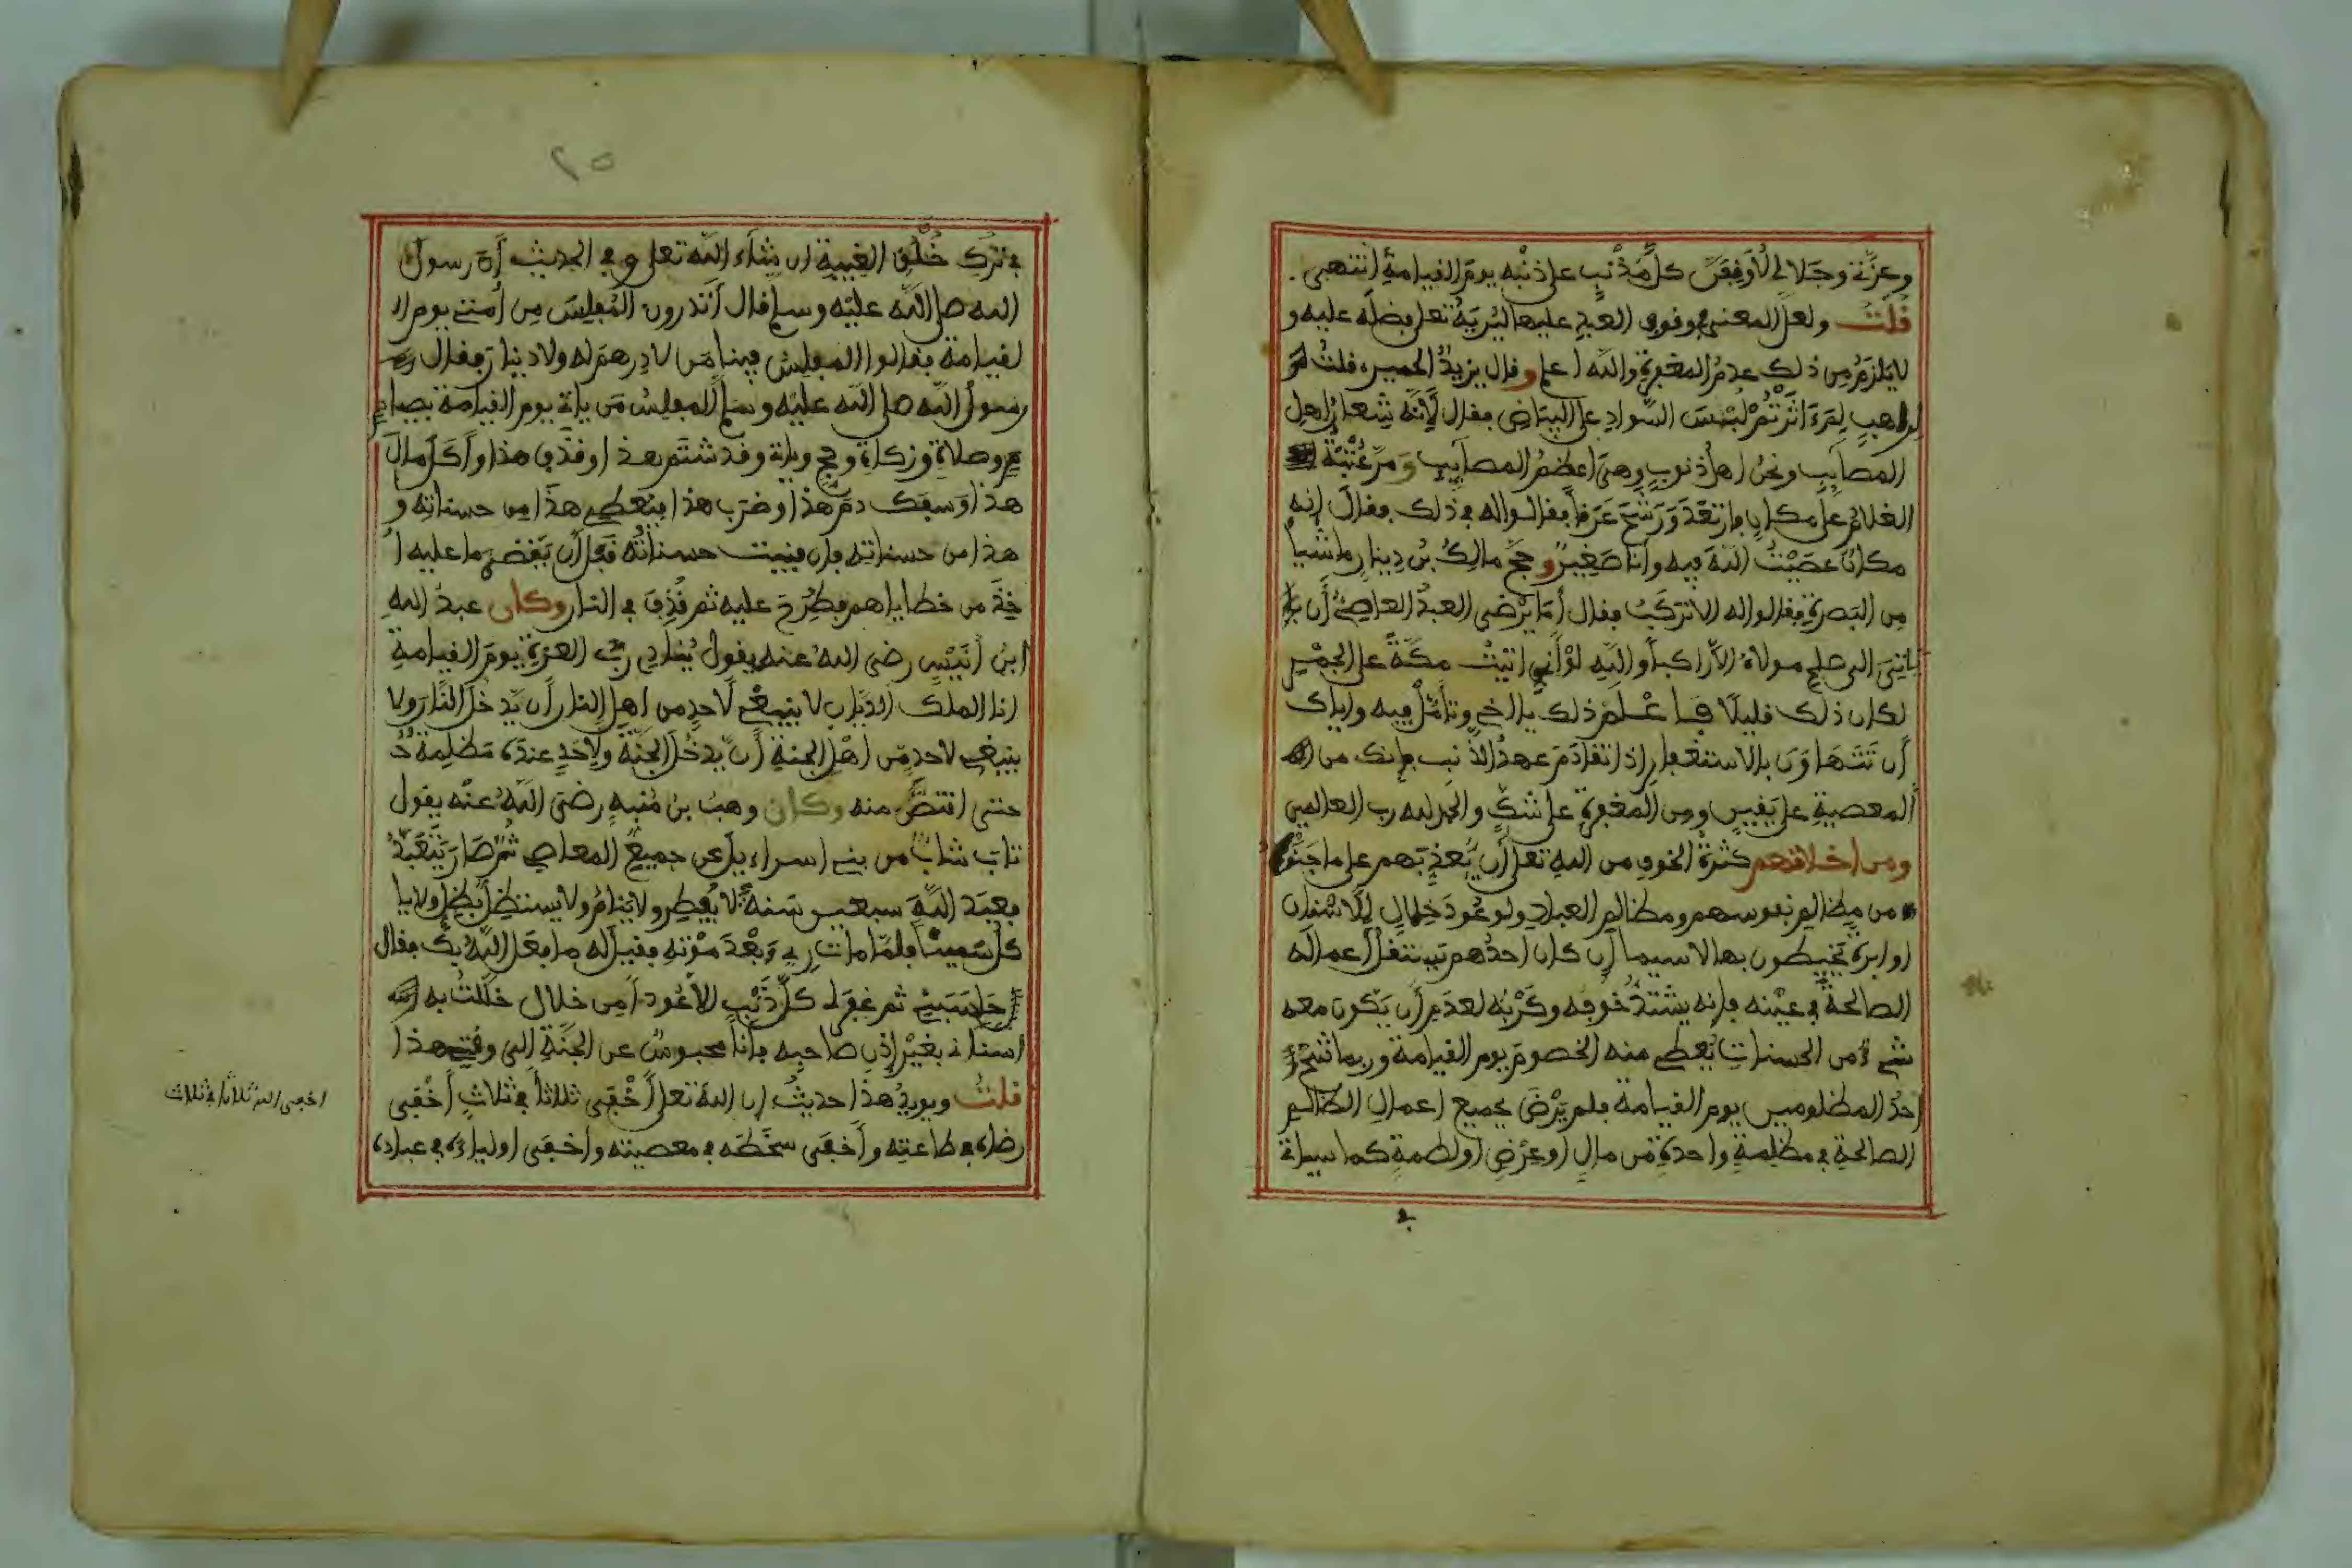 وعزتي وجلالي لأوقفن كل مذنب على ذنبه يوم القيامة انتهى.
قلت ولعل المعنى وقوف العبد عليها ليريه تعلى فضله عليه و
لا يلزم من ذلك عدم المغفرة والله اعلم وقال يزيد الحميري قلت
لراهب لم ءاثرتم لبس السواد على البياض فقال لأنه شعار اهل
المصايب ونحن اهل ذنوب وهي اعظم المصايب ومر عتبة
الغلام على مكان فارتعد ورشح عرقا فقالوا له في ذلك فقال انه
مكان عصيت الله فيه وانا صغير وحج مالك بن دينار ماشيا
من البصرة فقالوا له الا تركب فقال أما يرضى العبد العاصي أن
ياتي الى صلح مولاه الا راكبا والله لو أني اتيت مكة على الجمر
لكان ذلك قليلا فاعلم ذلك يا اخي وتأمل فيه واياك
أن تتهاون بالاستغفار اذا تقادم عهد الذنب فانك من
المعصية على يقين ومن المغفرة على شك والحمد لله رب العالمين
ومن اخلاقهم كثرة الخوف من الله تعلى أن يعذبهم على ما جنوه
من مظالم نفوسهم ومظالم العباد ولو عود خلال للاسنان
او ابرة يخيطون بها لاسيما إن كان احدهم يستقل أعماله
الصالحة في عينه فإنه يشتد خوفه وكربه لعدم أن يكون معه
شيء من الحسنات يعطي منه الخصوم يوم القيامة وربما شح
احد المظلومين يوم القيامة فلم يرض بجميع اعمال الظالم
الصالحة في مظلمة واحدة من مال او عرض او لطمة كما سياتي
في
٢٥
في ترك خلق الغيبة ان شاء الله تعلى وفي الحديث أن رسول
الله صلى الله عليه وسلم قال أتدرون المفلس من أمتي يوم ا
لقيامة فقالوا المفلس فينا من لا درهم له ولا دينار فقال
رسول الله صلى الله عليه وسلم المفلس من ياتي يوم القيامة بصيا
م وصلاة وزكاة وحج وياتي وقد شتم هذا وقذف هذا وأكل مال
هذا وسفك دم هذا وضرب هذا فيعطى هذا من حسناته و
هذا من حسناته فإن فنيت حسناته قبل أن يقضى ما عليه ا
خذ من خطاياهم فطرح عليه ثم قذف في النار وكان عبد الله
ابن أنيس رضي الله عنه يقول ينادي رب العزة يوم القيامة
انا الملك الديان لا ينبغي لأحد من اهل النار أن يدخل النار ولا
ينبغي لاحد من اهل الجنة أن يدخل الجنة ولأحد عنده مظلمة
حتى اقتص منه وكان وهب بن منبه رضي الله عنه يقول
تاب شاب من بني اسراءيل عن جميع المعاصي ثم صار يتعبد
فعبد الله سبعين سنة لا يفطر ولا ينام ولا يستظل بظل ولا يا
كل سمينا فلما مات رءي بعد موته فقيل له ما فعل الله بك فقال
حاسبني ثم غفر لي كل ذنب الا عودا من خلال خللت به
اسناني بغير إذن صاحبه فأنا محبوس عن الجنة الى وقتي هذا
قلت ويويد هذا حديث ان الله تعلى أخفى ثلاثا في ثلاث أخفى
رضاه في طاعته وأخفى سخطه في معصيته واخفى اولياءه في عباده
اخفى الله ثلاثا في ثلاث